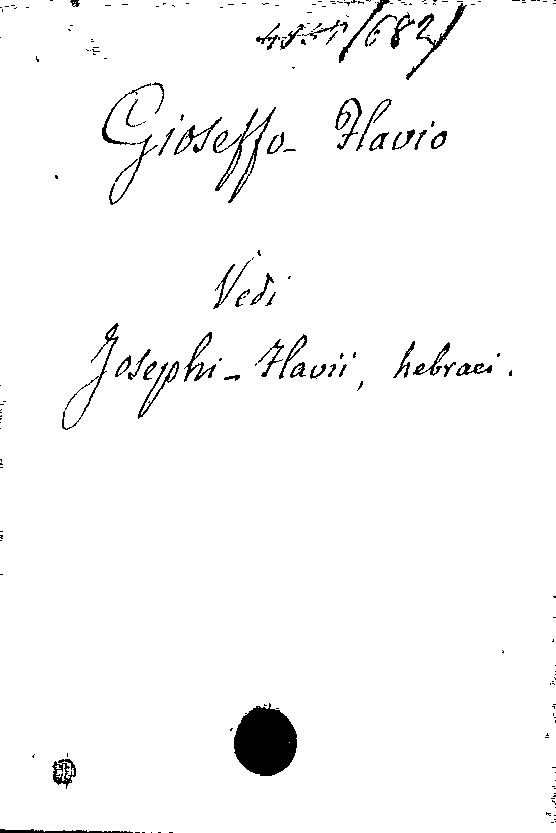 (682)
Gioseffo - Flavio
Vedi
Josephi - Flavii, hebraei.